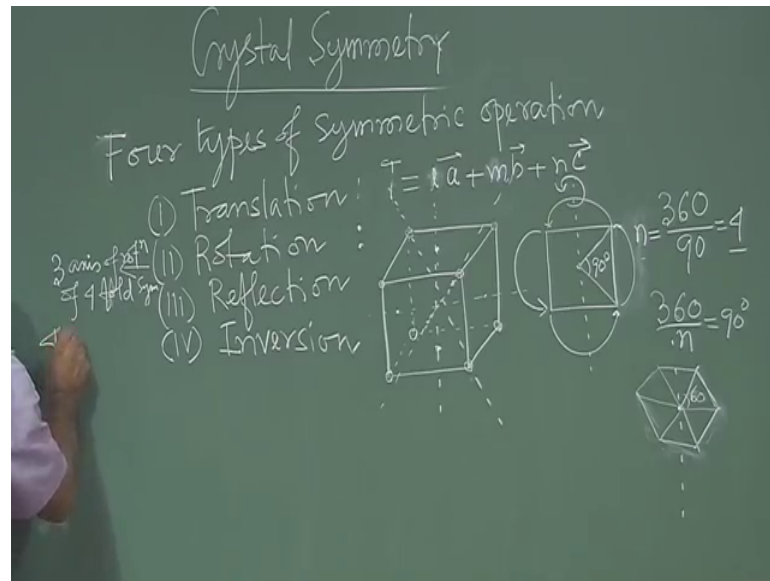 Crystal Symmetry
Four types of symmetric operation
(i) Translation : T = l a⃗ + m b⃗ + n c⃗
(ii) Rotation :
(iii) Reflection
(iv) Inversion
3 axis of rotⁿ
of 4 fold sym
4
90°
n = 360/90 = 4
360/n = 90°
60